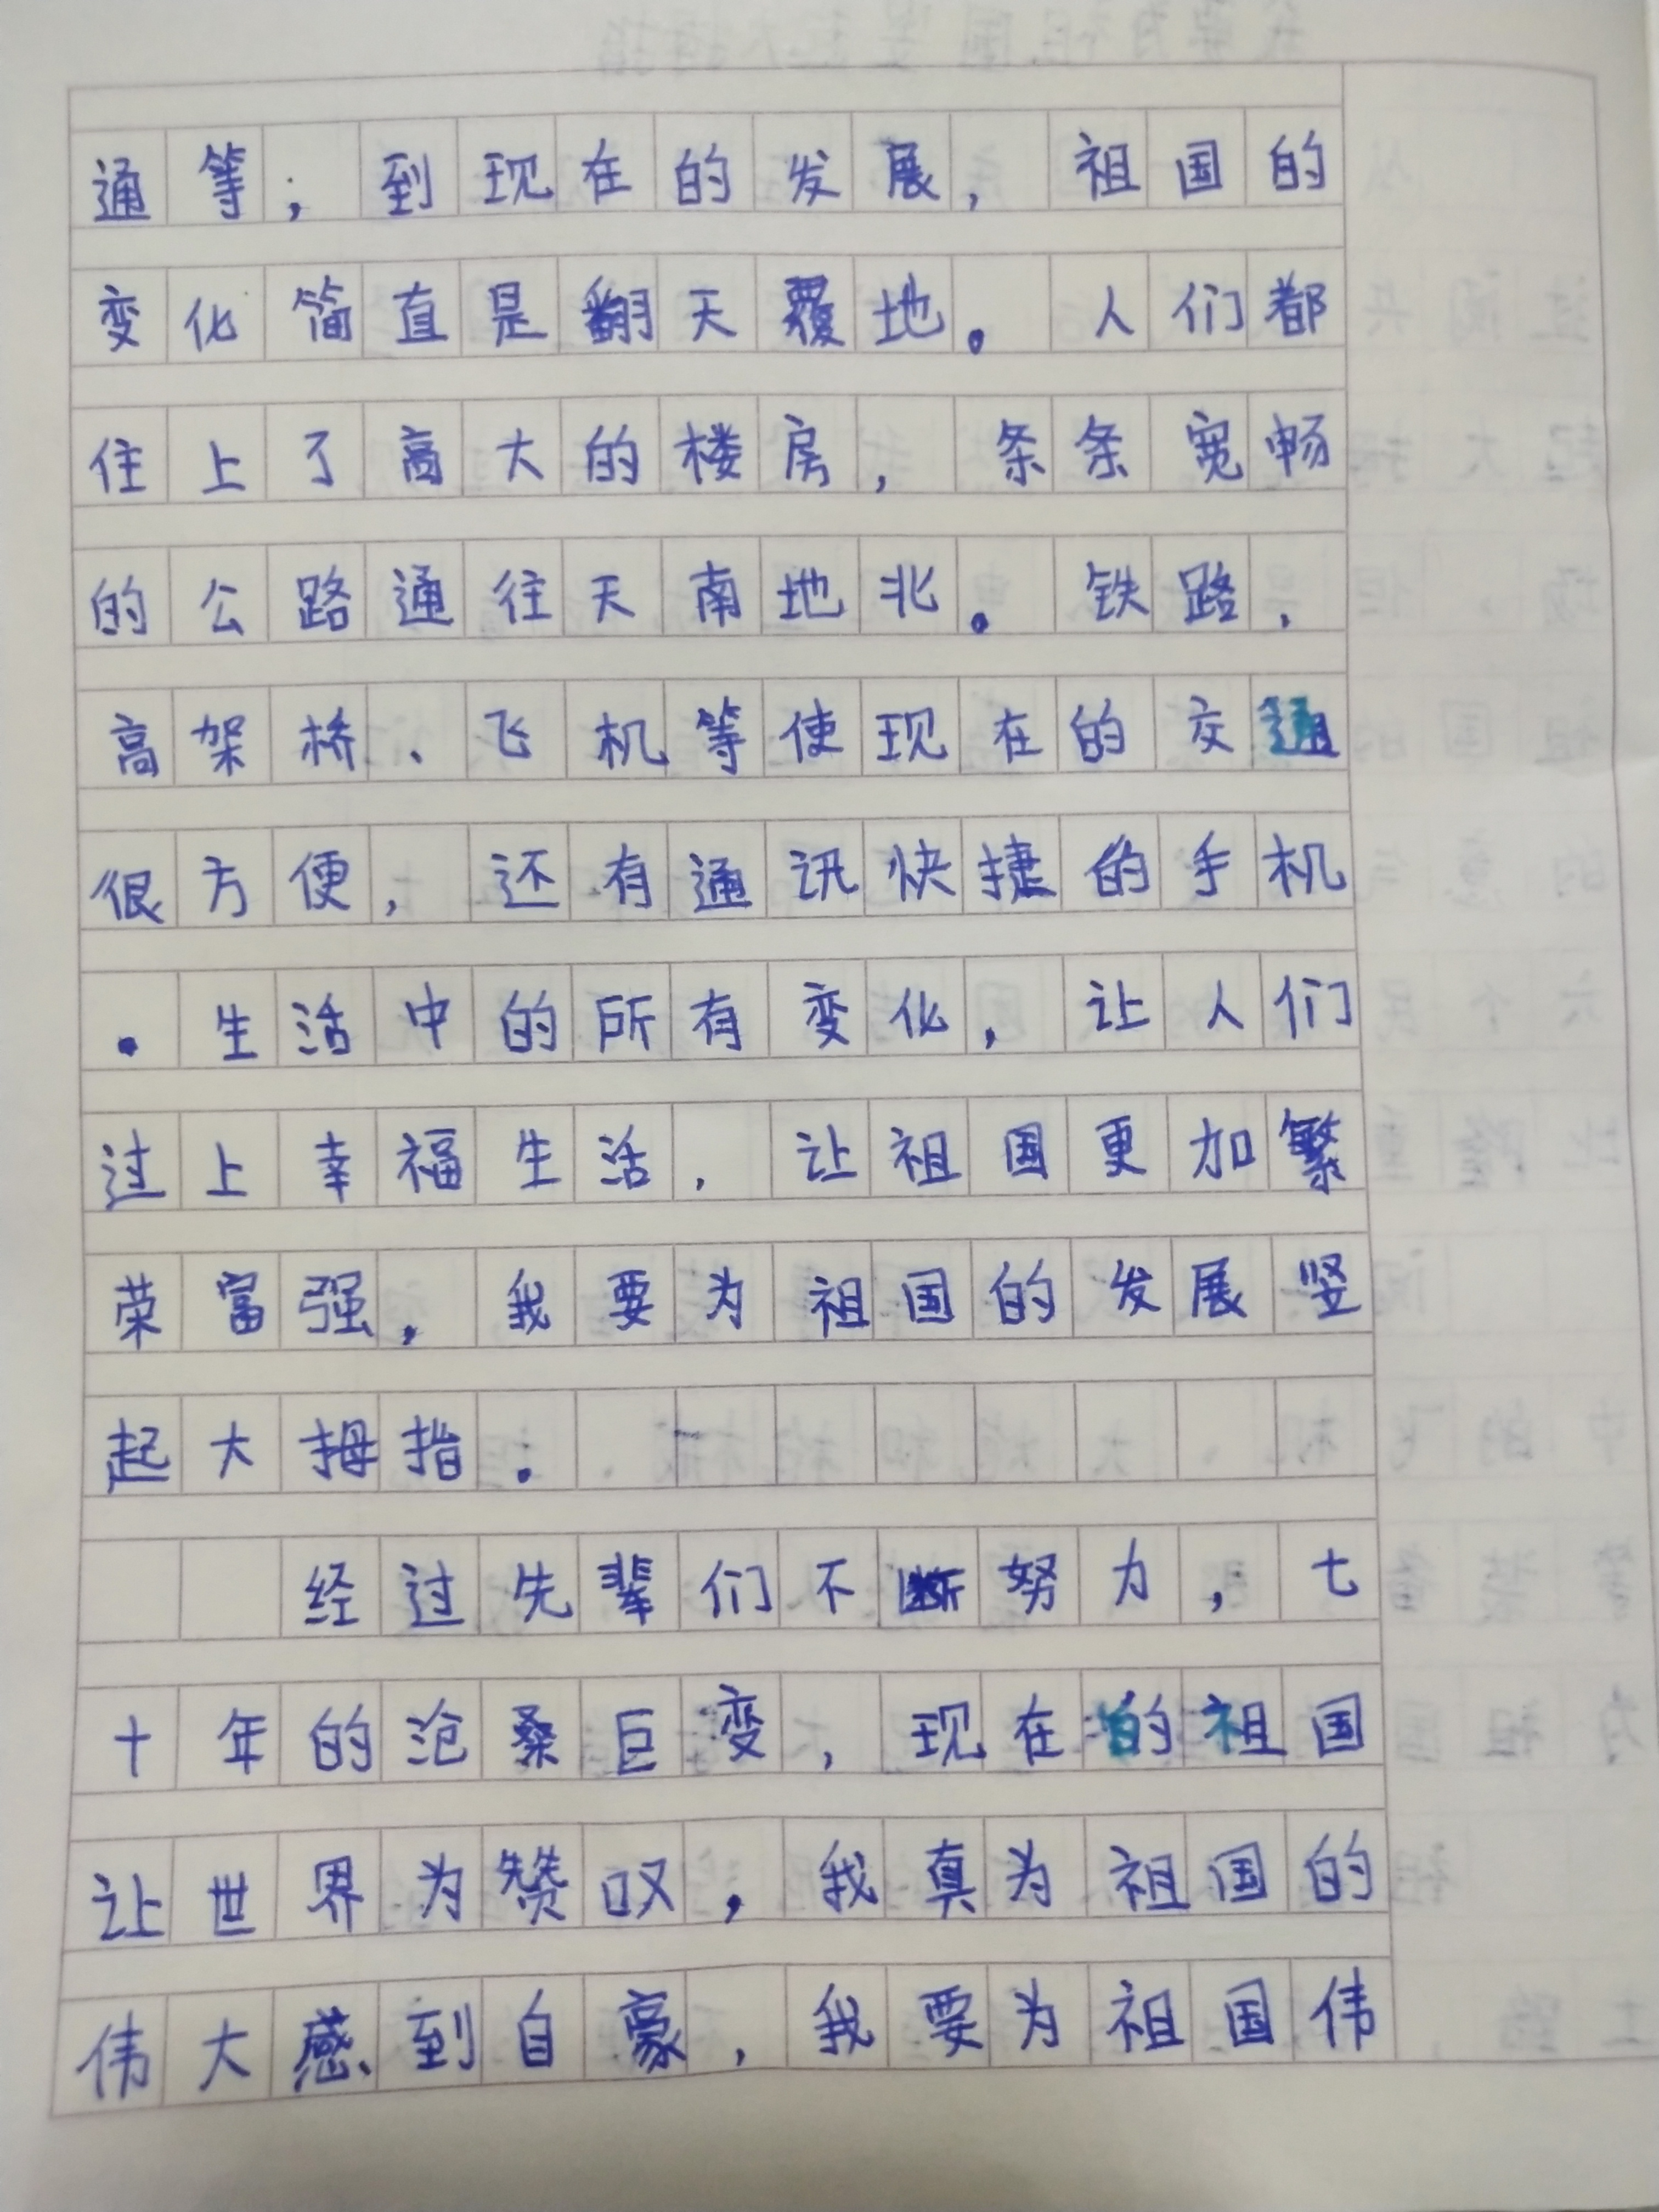 通等;到现在的发展,祖国的
变化简直是翻天覆地。人们都
住上了高大的楼房,条条宽畅
的公路通往天南地北。铁路、
高架桥、飞机等使现在的交通
很方便,还有通讯快捷的手机
。生活中的所有变化,让人们
过上幸福生活,让祖国更加繁
荣富强,我要为祖国的发展竖
起大拇指。
经过先辈们不断努力,七
十年的沧桑巨变,现在的祖国
让世界为赞叹,我真为祖国的
伟大感到自豪,我要为祖国伟